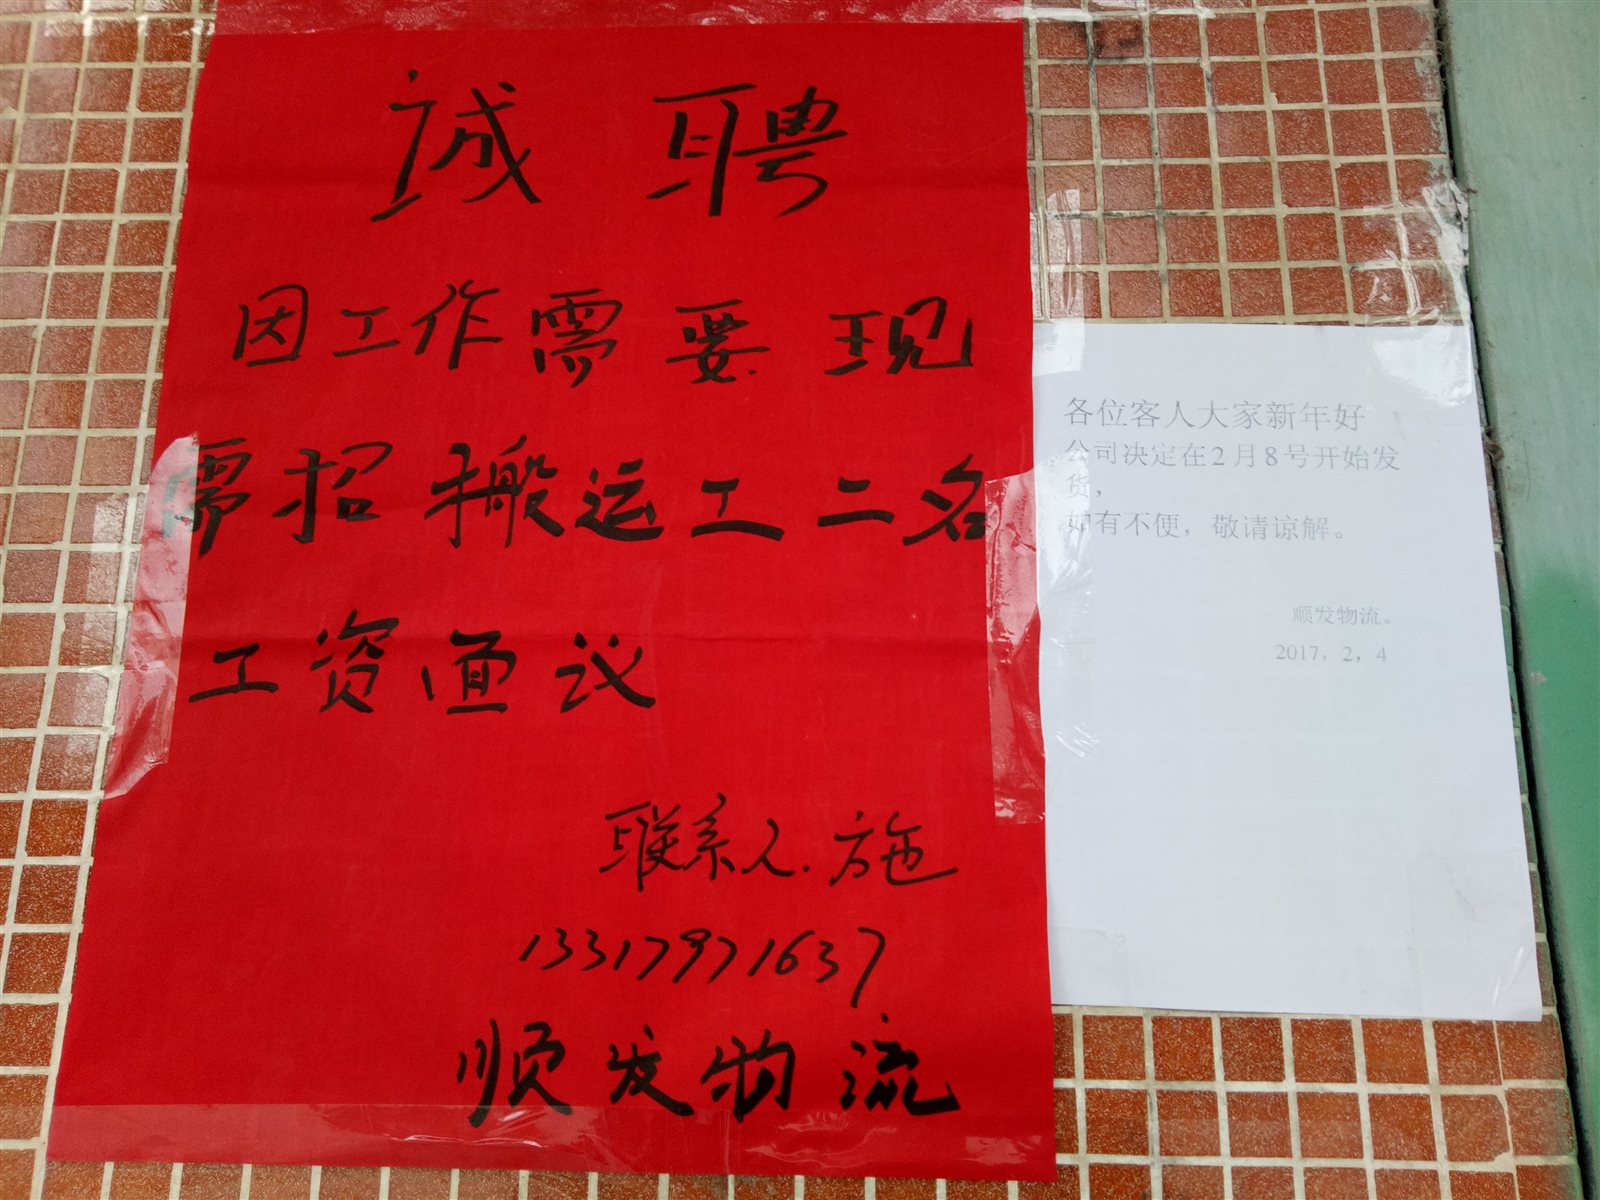 诚聘
因工作需要现
需招搬运工二名
工资面议
联系人.施
13317971637
顺发物流
各位客人大家新年好
公司决定在2月8号开始发
货，
如有不便，敬请谅解。
顺发物流。
2017，2，4